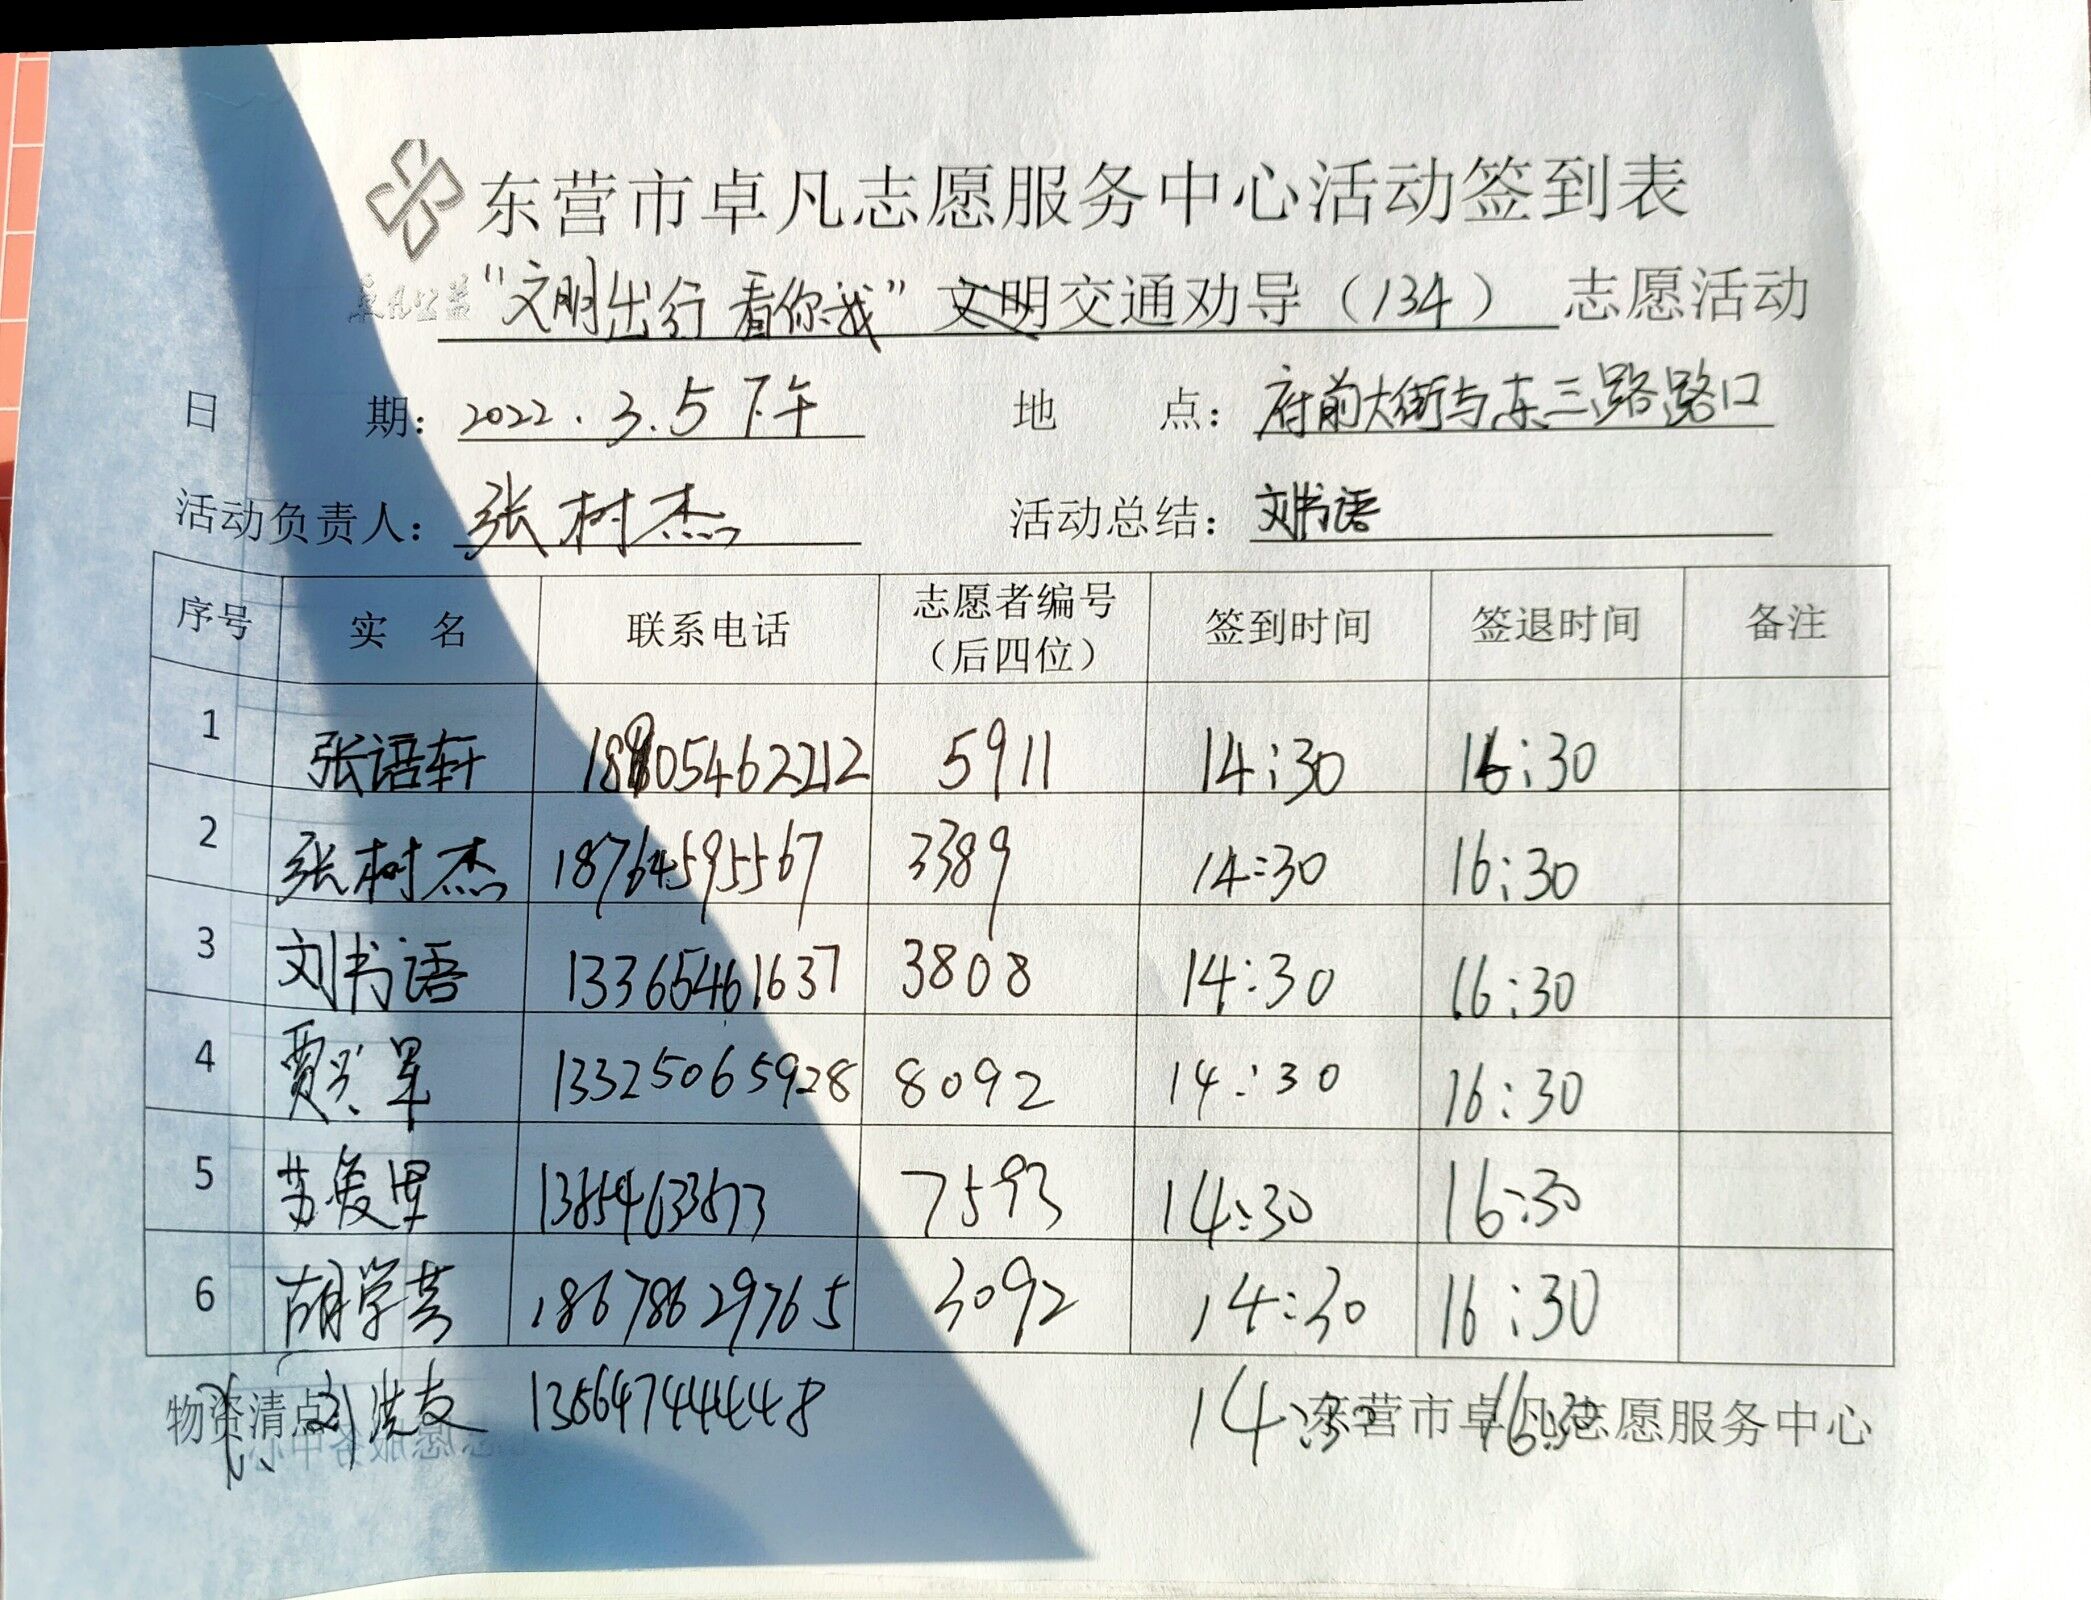 东营市卓凡志愿服务中心活动签到表
卓凡公益
“文明出行 看你我” 文明交通劝导（134） 志愿活动
日 期：2022.3.5下午 地 点：府前大街与东三路路口
活动负责人：张树杰 活动总结：刘书语
序号 实 名 联系电话 志愿者编号（后四位） 签到时间 签退时间 备注
1 张语轩 5911 14:30 16:30
2 张树杰 18764595567 3389 14:30 16:30
3 刘书语 13365461637 3808 14:30 16:30
4 13325065928 8092 14:30 16:30
5 7593 14:30 16:30
6 胡学芸 18678629765 3092 14:30 16:30
物资清点 14:30 16:30 东营市卓凡志愿服务中心